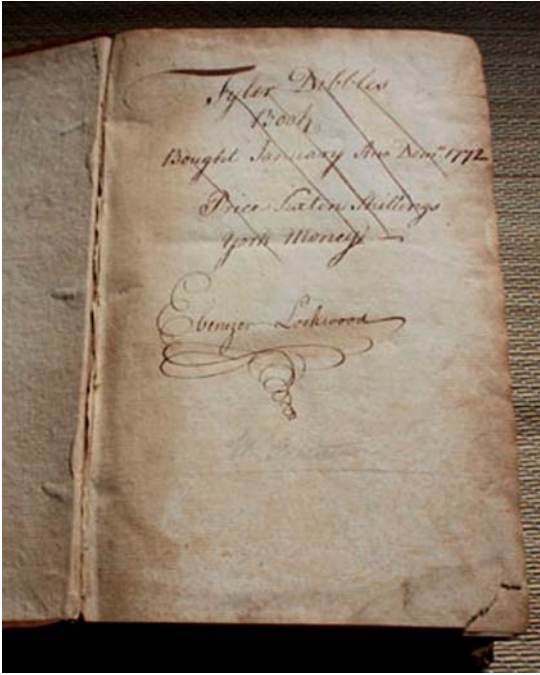 Tyler Dibbles
Book,
Bought January Ano Dom: 1772
Price Sixten Shillings
York Money
Ebenezer Lockwood